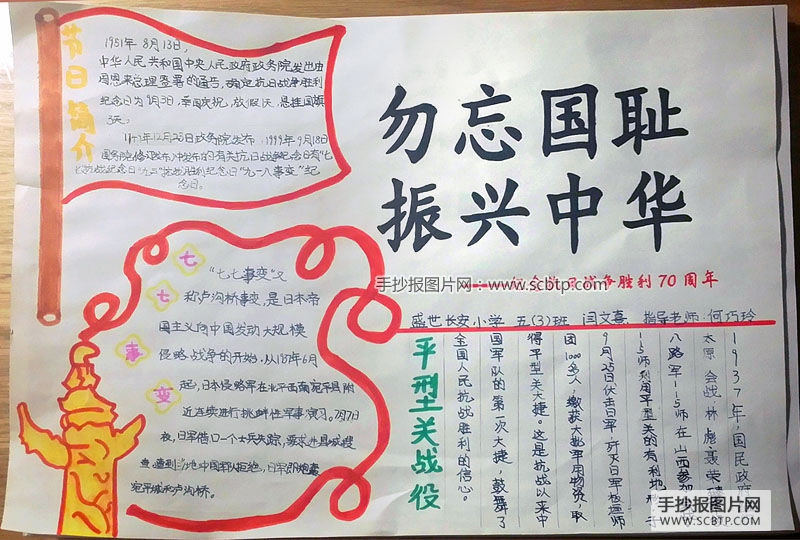 节日简介
1951年8月13日，
中华人民共和国中央人民政府政务院发出由
周恩来总理签署的通告，确定抗日战争胜利
纪念日为9月3日，举国庆祝，放假1天，悬挂国旗
3天。
年12月23日政务院发布，1999年9月18日
国务院修
纪念日"九三"抗战胜利纪念日"九一八事变"纪
念日。
勿忘国耻
振兴中华
手抄报图片网：www.scbtp.com
战争胜利70周年
盛世长安小学 五(3)班 闫文熹 指导老师：何巧玲
七七事变
"七七事变"又
称卢沟桥事变，是日本帝
国主义向中国发动大规模
侵略战争的开始。从 年6月
起，日本侵略军在北平西南宛平县附
近连续进行挑衅性军事演习。7月7日
夜，日军借口一个士兵失踪，要求进县城搜
查，遭到 中国军队拒绝，日军即炮轰
宛平城和卢沟桥。
平型关战役
1937年，国民政府
太原会战，林彪、聂荣臻
八路军115师在山西参加
115师利用平型关的有利地形于
9月25日伏击日军，歼灭日军板垣师
团1000多人，缴获大批军用物资，取
得平型关大捷。这是抗战以来中
国军队的第一次大捷，鼓舞了
全国人民抗战胜利的信心。
手抄报图片网
WWW.SCBTP.COM